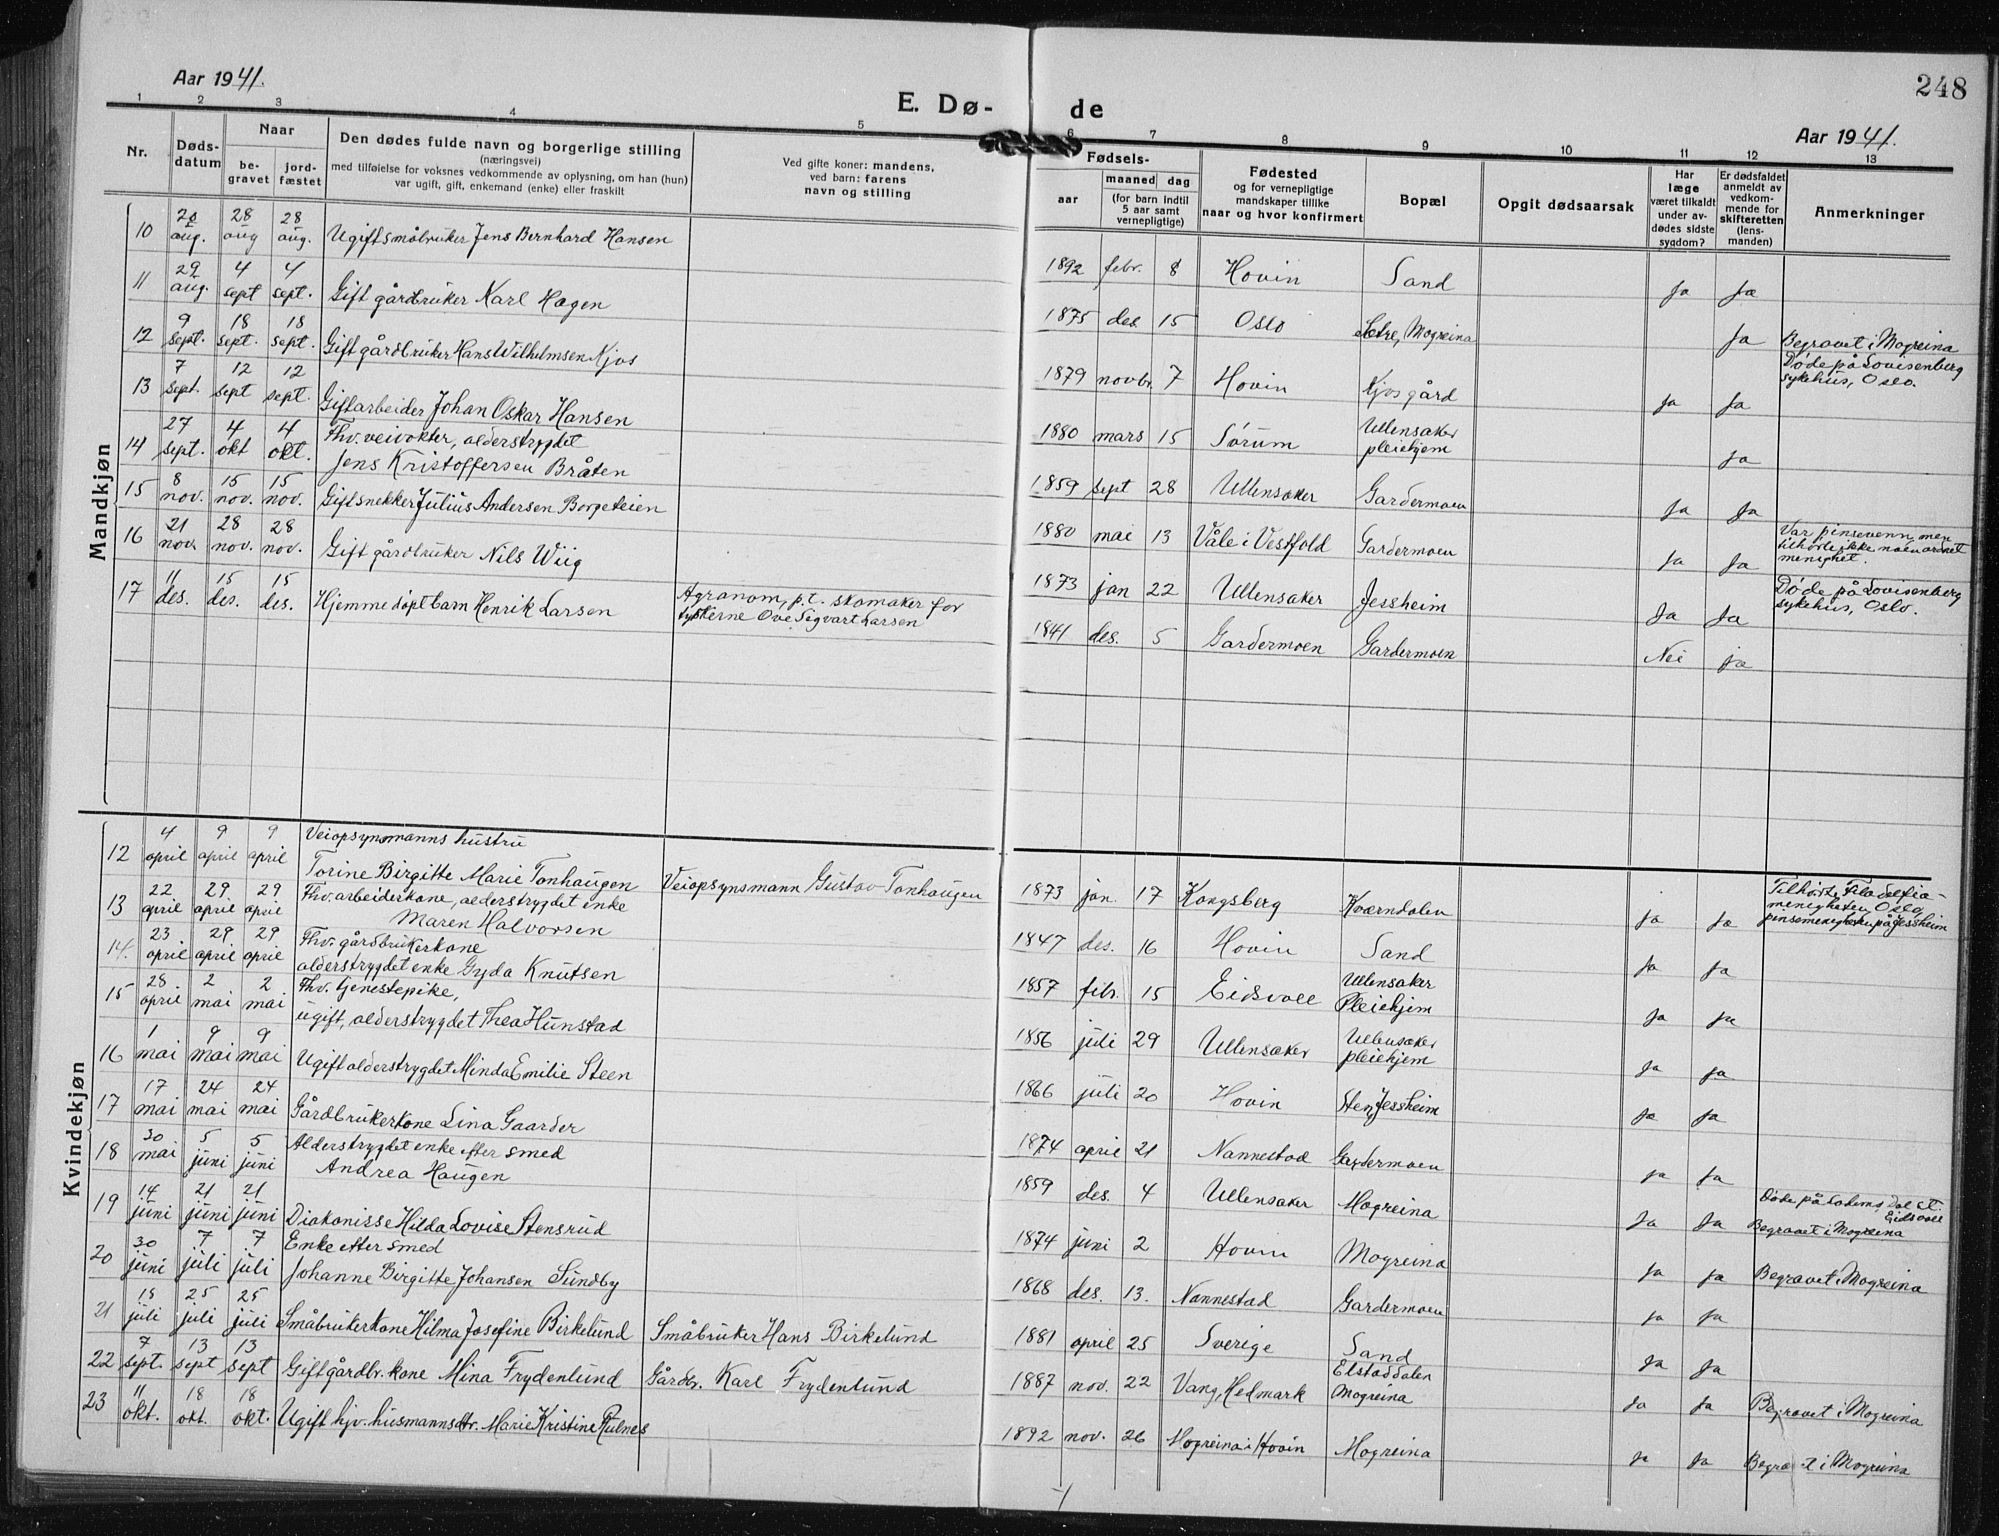 Aar 1941.
E. Dø-
de
248
Aar 1941.
1 2 3 4 5 6 7 8 9 10 11 12 13
Nr.
Døds-
datum
Naar
be-
gravet
jord-
fæstet
Den dødes fulde navn og borgerlige stilling
(næringsvei)
med tilføielse for voksnes vedkommende av oplysning, om han (hun)
var ugift, gift, enkemand (enke) eller fraskilt
Ved gifte koner: mandens,
ved barn: farens
navn og stilling
Fødsels-
aar
maaned dag
(for barn indtil
5 aar samt
vernepligtige)
Fødested
og for vernepligtige
mandskaper tillike
naar og hvor konfirmert
Bopæl
Opgit dødsaarsak
Har
læge
været tilkaldt
under av-
dødes sidste
sygdom?
Er dødsfaldet
anmeldt av
vedkom-
mende for
skifteretten
(lens-
manden)
Anmerkninger
Mandkjøn
10 20 aug. 28 aug 28 aug. Ugift småbruker Jens Bernhard Hansen 1892 febr. 8 Hovin Sand Ja Ja
11 29 aug. 4 sept 4 sept. Gift gårdbruker Karl Hagen 1875 des. 15 Oslo Sætre, Mogreina Ja Begravet i Mogreina
12 9 sept. 18 sept. 18 sept. Gift gårdbruker Hans Wilhelmsen Kjos 1879 novbr. 7 Hovin Kjos gård Ja Ja Døde på Lovisenberg
sykehus, Oslo.
13 7 sept. 12 sept 12 sept. Gift arbeider Johan Oskar Hansen 1880 mars 15 Sørum Ullensaker
pleiehjem Ja
14 27 sept. 4 okt 4 okt. Fhv. veivokter, alderstrygdet
Jens Kristoffersen Bråten 1859 sept 28 Ullensaker Gardermoen Ja Ja
15 8 nov. 15 nov. 15 nov. Gift snekker Julius Andersen Borgeteien 1880 mai 13 Våle i Vestfold Gardermoen Ja Ja Var pinsevenn, men
tilhørte ikke noen ordnet
menighet.
16 21 nov. 28 nov. 28 nov. Gift gårdbruker Nils Wiig 1873 jan 22 Ullensaker Jessheim Ja Ja Døde på Lovisenberg
sykehus, Oslo.
17 11 des. 15 des. 15 des. Hjemmedøpt barn Henrik Larsen Agranom, p.t. skomaker for
tyskerne Ove Sigvart Larsen 1841 des. 5 Gardermoen Gardermoen Nei ja
Kvindekjøn
12 4 april 9 april 9 april Veiopsynsmanns hustru
Torine Birgitte Marie Tonhaugen Veiopsynsmann Gustav Tonhaugen 1873 jan. 17 Kongsberg Kværndalen Ja Ja Tilhørte Filadelfia-
menigheten, Oslo,
pinsemenigheten på Jessheim
13 22 april 29 april 29 april Fhv. arbeiderkone, alderstrygdet enke
Maren Halvorsen 1847 des. 16 Hovin Sand Ja Ja
14. 23 april 29 april 29 april Fhv. gårdbrukerkone
alderstrygdet enke Gyda Knutsen 1857 febr. 15 Eidsvoll Ullensaker
Pleiehjem Ja Ja
15 28 april 2 mai 2 mai Fhv. tjenestepike,
ugift, alderstrygdet Thea Hunstad 1856 juli 29 Ullensaker Ullensaker
pleiehjem Ja Ja
16 1 mai 9 mai 9 mai Ugift alderstrygdet Minda Emilie Steen 1866 juli 20 Hovin Sten, Jessheim Ja Ja
17 17 mai 24 mai 24 mai Gårdbrukerkone Lina Gaarder 1874 april 21 Nannestad Gardermoen Ja Ja
18 30 mai 5 juni 5 juni Alderstrygdet enke efter smed
Andrea Haugen 1859 des. 4 Ullensaker Mogreina Ja Ja Døde på Dal st.
Eidsvoll
Begravet i Mogreina
19 14 juni 21 juni 21 juni Diakonisse Hilda Lovise Stensrud 1874 juni 2 Hovin Mogreina Ja Ja Begravet i Mogreina
20 30 juni 7 juli 7 juli Enke efter smed
Johanne Birgitte Johansen Sundby 1868 des. 13. Nannestad Gardermoen Ja Ja
21 19 juli 25 juli 25 juli Småbrukerkone Hilma Josefine Birkelund Småbruker Hans Birkelund 1881 april 25 Sverige Sand Ja Ja
22 7 sept. 13 sept 13 sept Gift gårdbr. kone Mina Frydenlund Gårdbr. Karl Frydenlund 1887 nov. 22 Vang, Hedmark Elstaddalen
Mogreina Ja Ja Begravet i Mogreina
23 11 okt. 18 okt. 18 okt. Ugift hjv. husmannsdtr. Marie Kristine Rulnes 1892 nov. 26 Mogreina i Hovin Mogreina Ja Ja Begravet i Mogreina